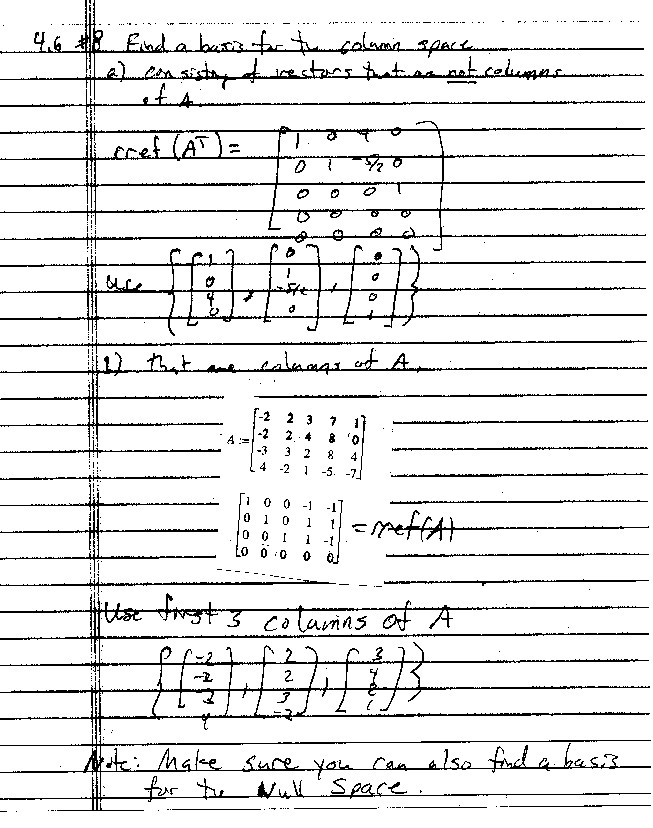 4.6 #8 Find a basis for the column space
a) consisting of vectors that are not columns
of A.
rref (Aᵀ) =
1 0 4 0
0 1 -5/2 0
0 0 0 1
0 0 0 0
0 0 0 0
use { [1 0 4 0], [0 1 -5/2 0], [0 0 0 1] }
b) that are columns of A.
A :=
-2 2 3 7 1
-2 2 4 8 0
-3 3 2 8 4
4 -2 1 -5 -7
1 0 0 -1 -1
0 1 0 1 1
0 0 1 1 -1
0 0 0 0 0
= rref(A)
Use first 3 columns of A
{ [-2 -2 -3 4], [2 2 3 -2], [3 4 2 1] }
Note: Make sure you can also find a basis
for the Null Space.